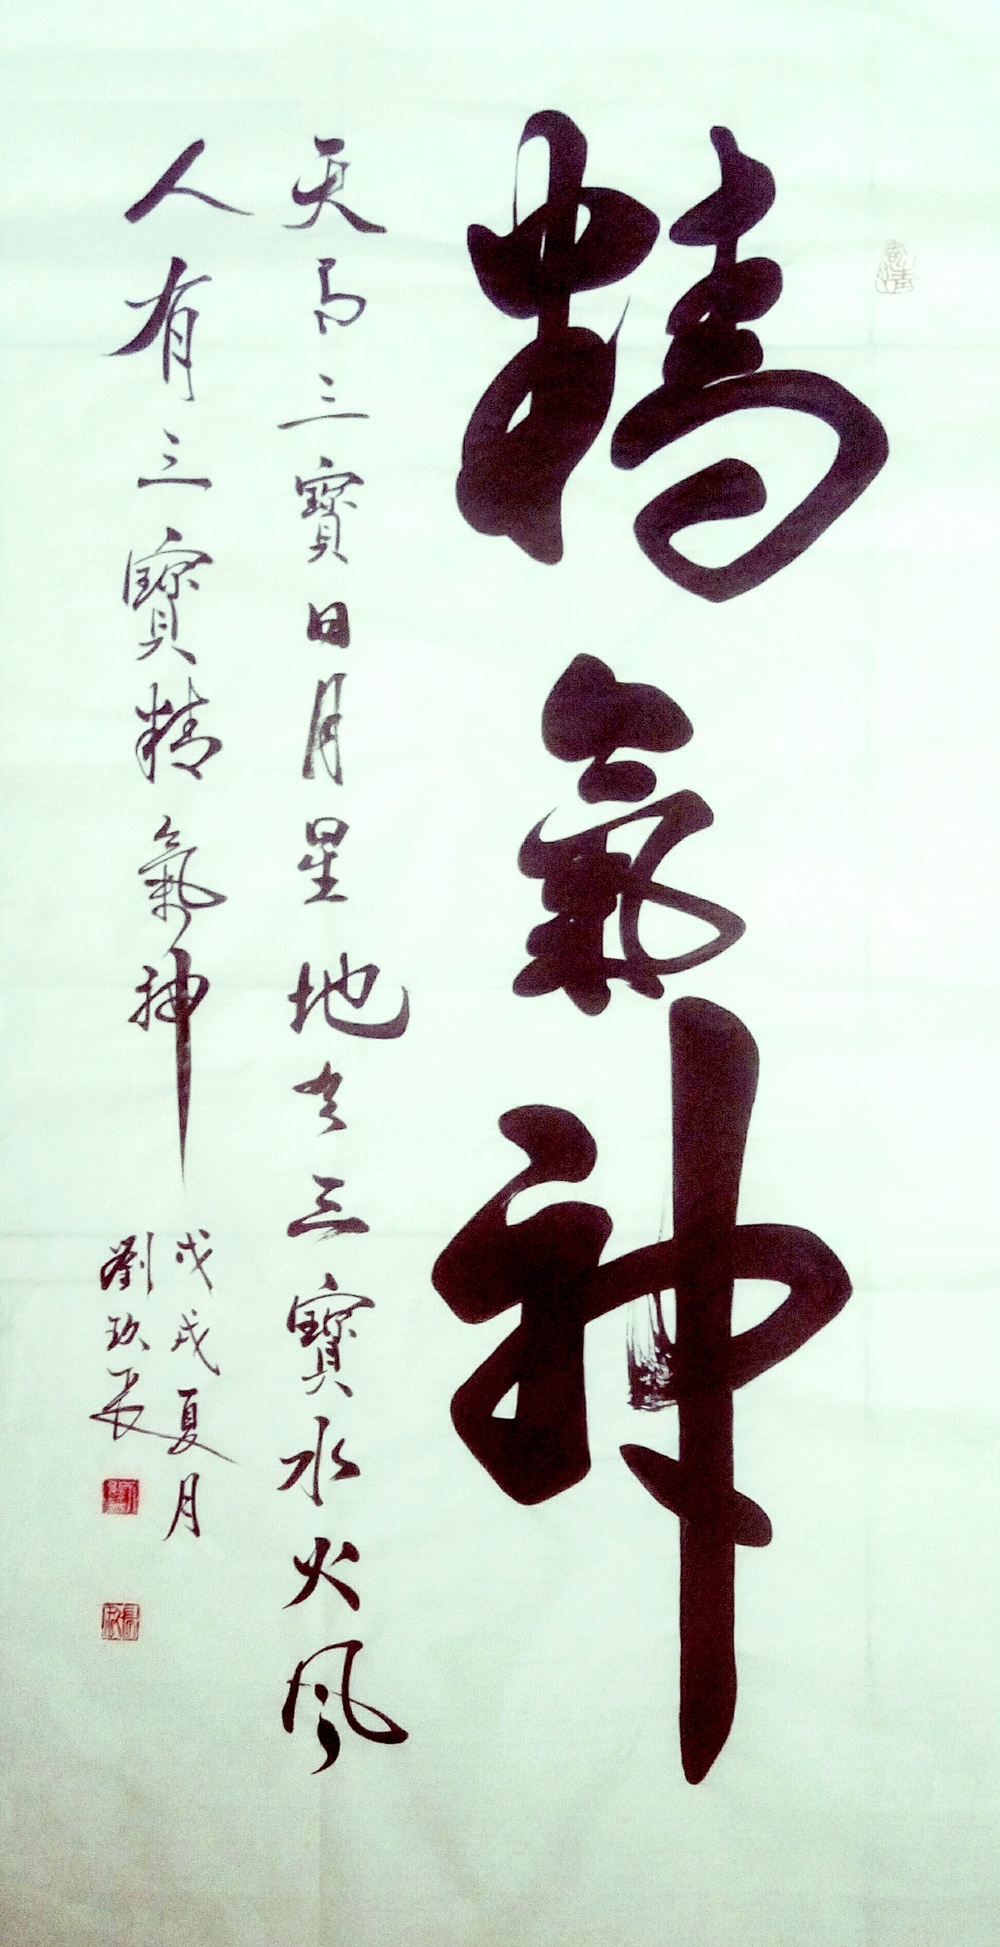 精氣神
天有三寶日月星地有三寶水火風
人有三寶精氣神
戊戌夏月
劉玖長